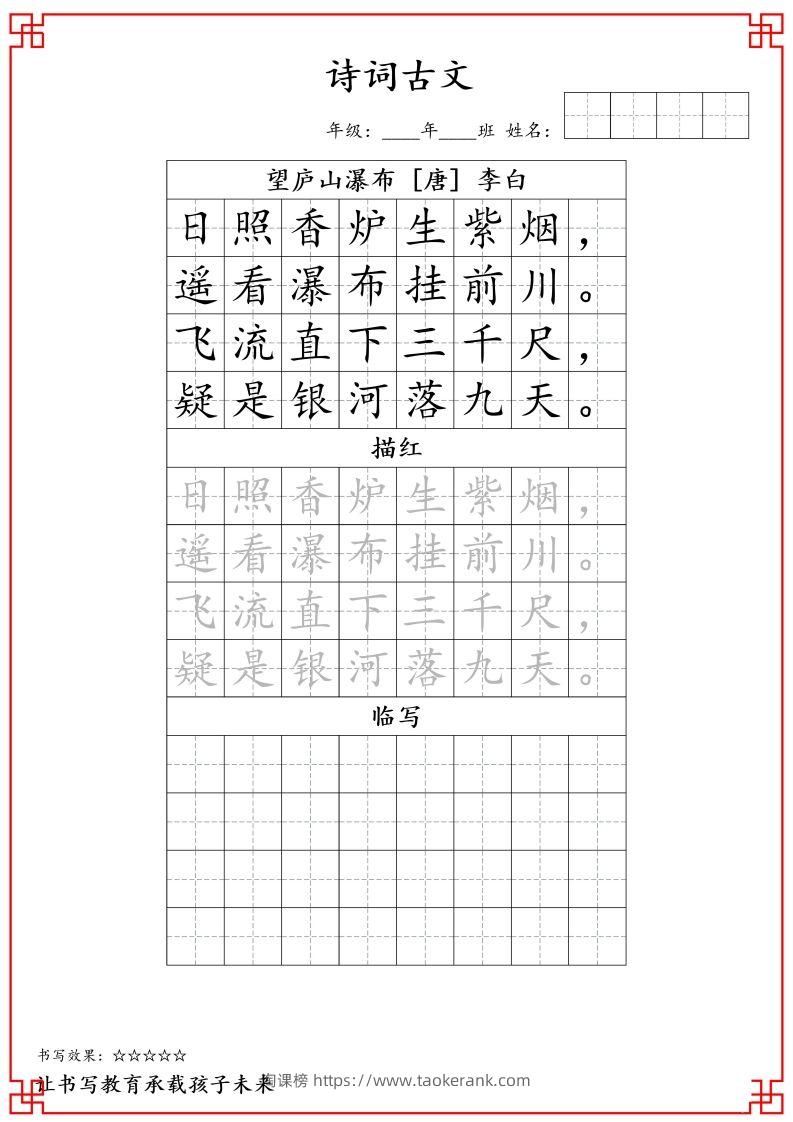 诗词古文
年级：____年____班 姓名：
望庐山瀑布［唐］李白
日照香炉生紫烟，
遥看瀑布挂前川。
飞流直下三千尺，
疑是银河落九天。
描红
日照香炉生紫烟，
遥看瀑布挂前川。
飞流直下三千尺，
疑是银河落九天。
临写
书写效果：☆☆☆☆☆
让书写教育承载孩子未来
淘课榜 https://www.taokerank.com